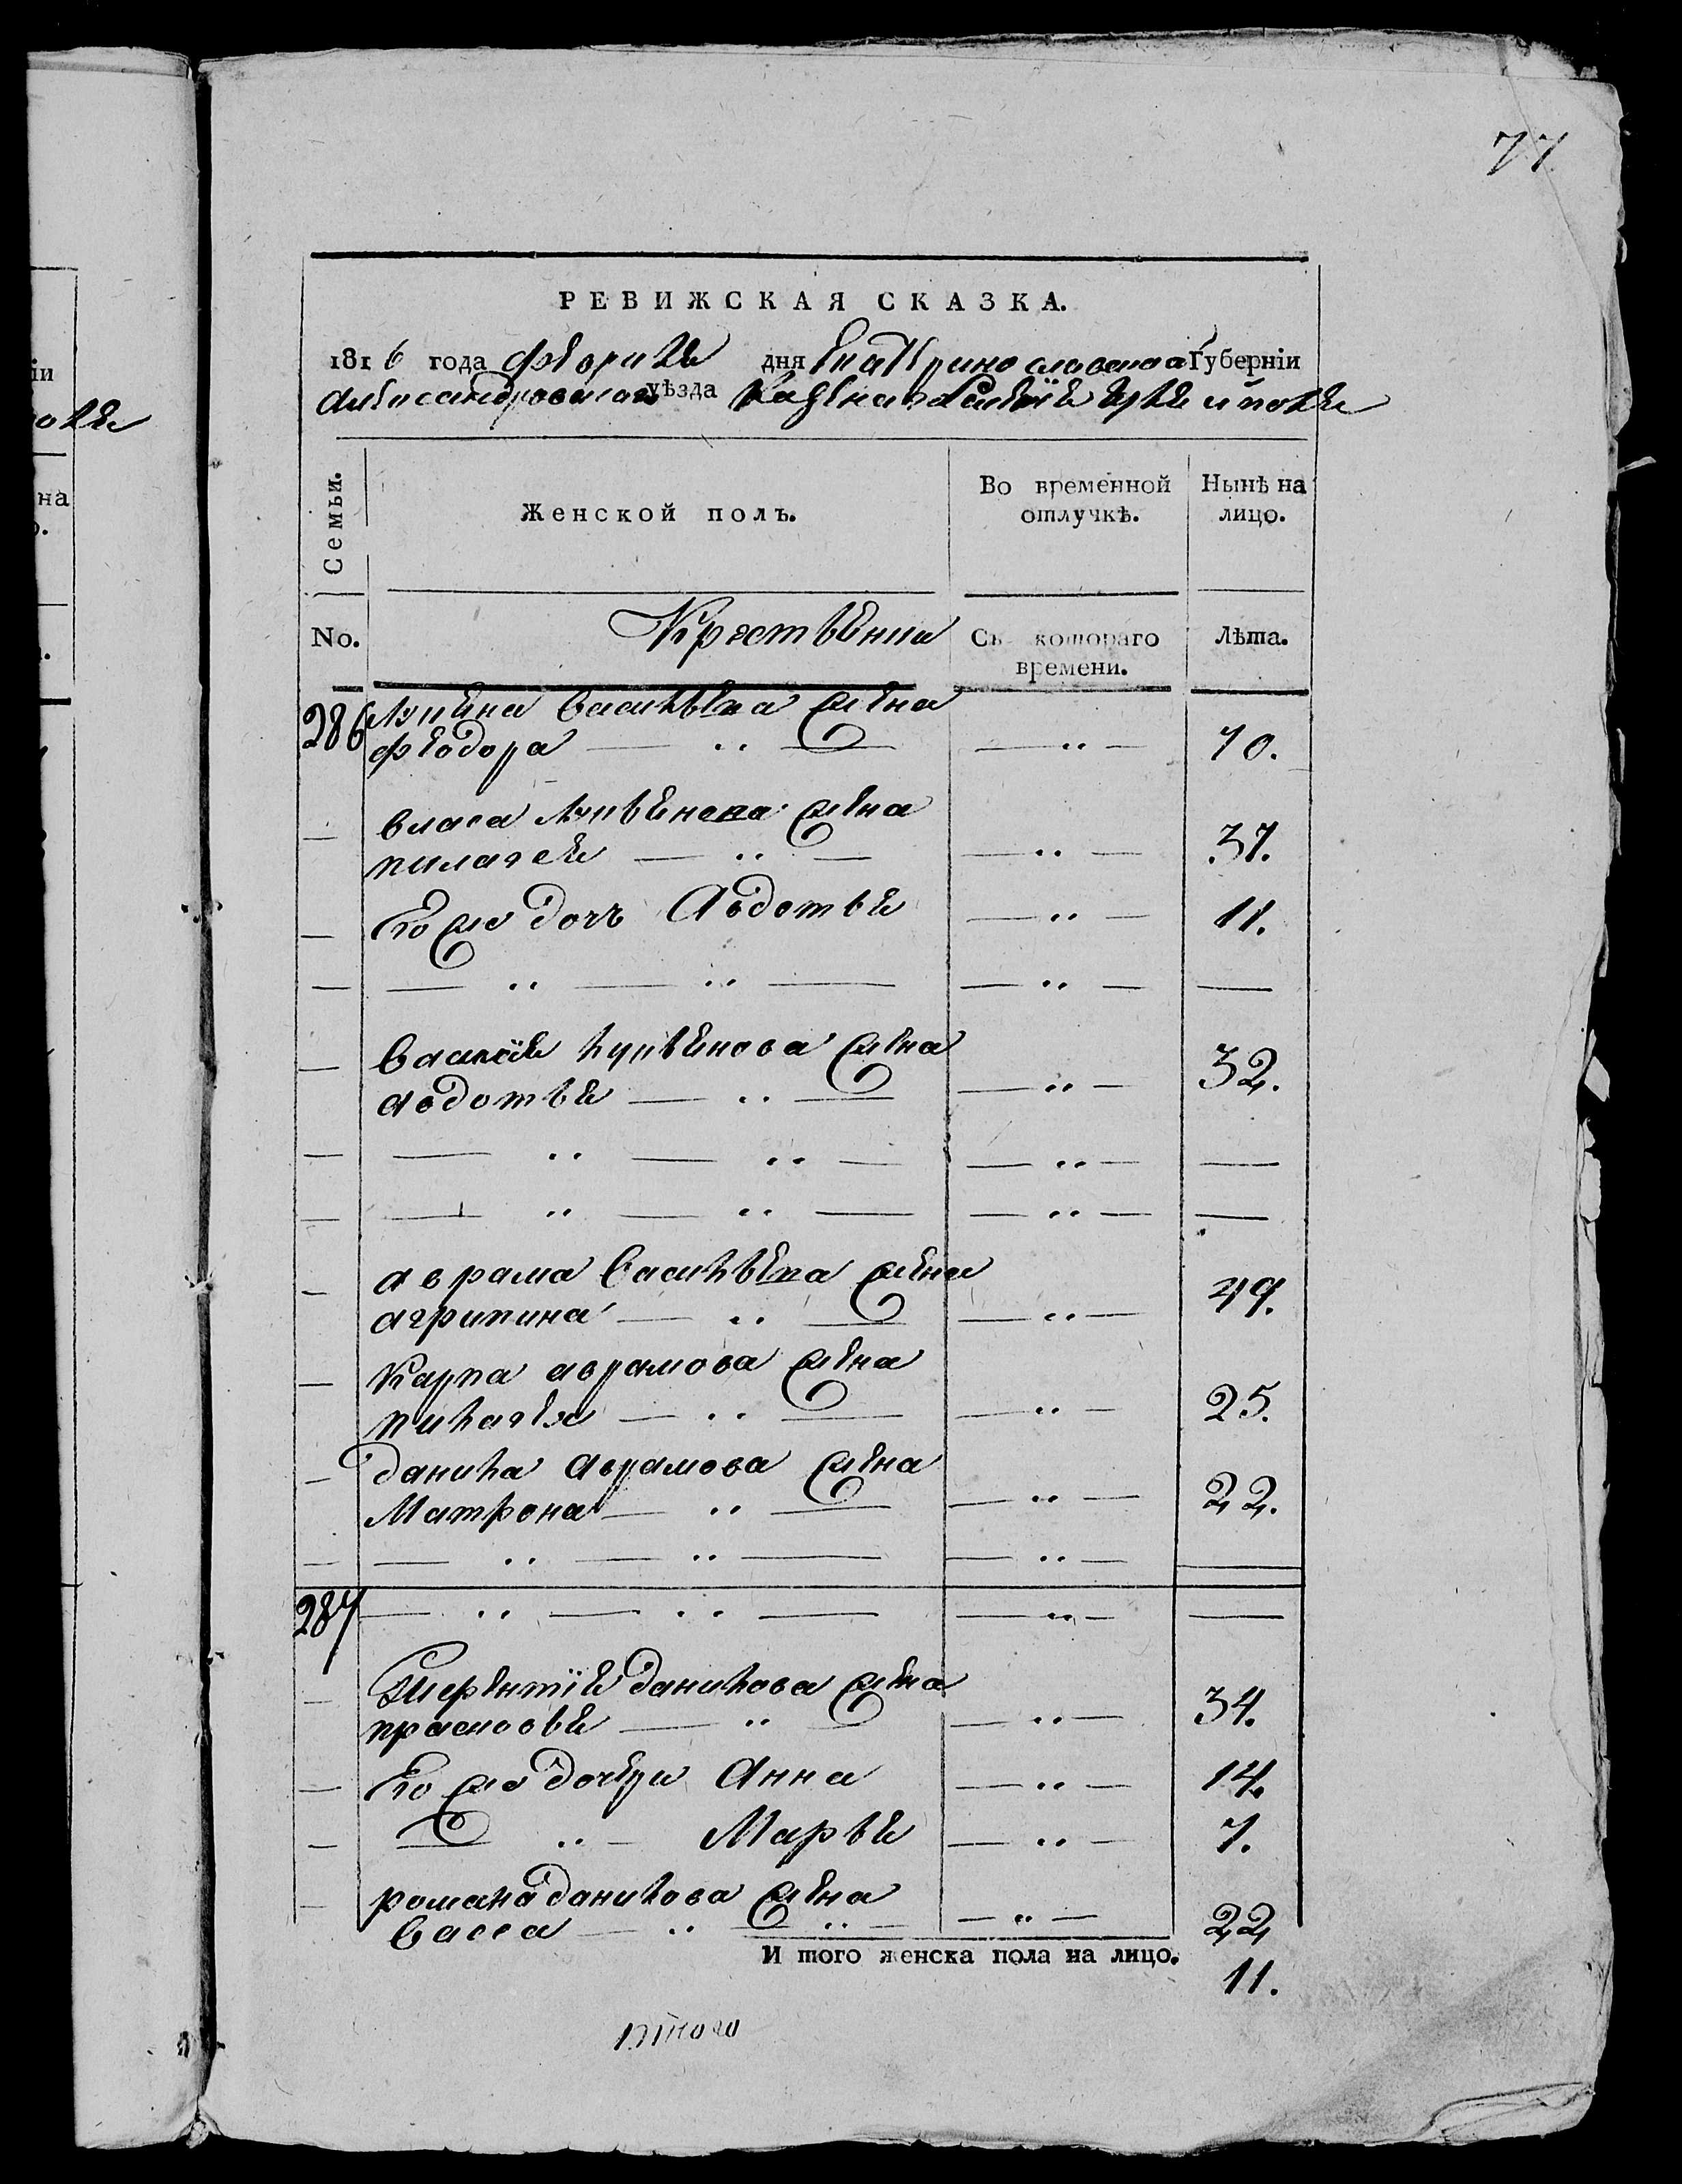 77
РЕВИЖСКАЯ СКАЗКА.
1816 года февраля дня Екатеринославской Губерніи
Александровскаго уѣзда
Семьи.
Женской полъ.
Во временной отлучкѣ.
Нынѣ на лицо.
No.
Съ котораго времени.
Лѣта.
286 Васильева жена
феодора — „ — — „ — 70.
— власа жена
пилагея — „ — — „ — 37.
— Его же дочь Авдотья — „ — 11.
— — „ — „ — — „ — —
— Василія жена
авдотья — „ — — „ — 32.
— — „ — „ — — „ — —
— — „ — „ — — „ — —
— аврама Васильева жена
агрипина — „ — — „ — 49.
— Карпа аврамова жена
пилагея — „ — — „ — 25.
— данила аврамова жена
Матрона — „ — — „ — 22.
— — „ — „ — — „ — —
287 — „ — „ — — „ — —
— Терентія данилова жена
прасковья — „ — — „ — 34.
— Его же дочери Анна — „ — 14.
— — „ — Марья — „ — 7.
— романа данилова жена
Васса — „ — „ — — „ — 22
И того женска пола на лицо.
11.